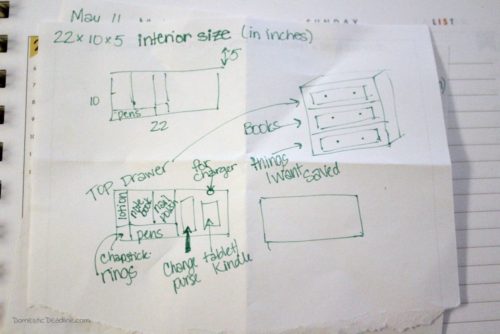 May 11
SUNDAY
LIST
22 x 10 x 5 interior size (in inches)
5
10
pens
22
Books
things
I want saved
Top Drawer
for
charger
lotion
note
book
nail
polish
pens
chapstick
rings
change
purse
tablet/
Kindle
DomesticDeadline.com